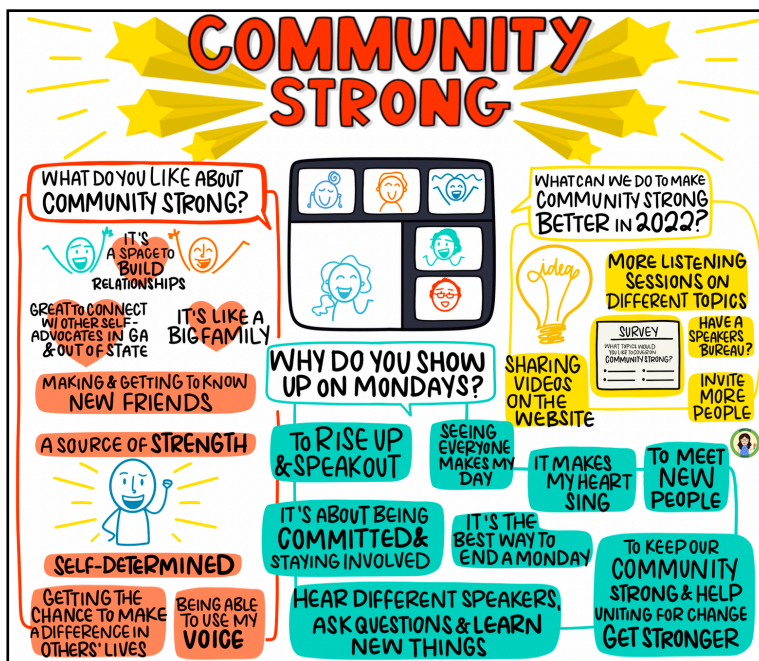 COMMUNITY
STRONG
WHAT DO YOU LIKE ABOUT
COMMUNITY STRONG?
IT'S
A SPACE TO
BUILD
RELATIONSHIPS
GREAT TO CONNECT
W/ OTHER SELF-
ADVOCATES IN GA
& OUT OF STATE
IT'S LIKE A
BIG FAMILY
MAKING & GETTING TO KNOW
NEW FRIENDS
A SOURCE OF STRENGTH
SELF-DETERMINED
GETTING THE
CHANCE TO MAKE
A DIFFERENCE IN
OTHERS' LIVES
BEING ABLE
TO USE MY
VOICE
WHY DO YOU SHOW
UP ON MONDAYS?
TO RISE UP
& SPEAK OUT
SEEING
EVERYONE
MAKES MY
DAY
IT MAKES
MY HEART
SING
TO MEET
NEW
PEOPLE
IT'S ABOUT BEING
COMMITTED &
STAYING INVOLVED
IT'S THE
BEST WAY TO
END A MONDAY
HEAR DIFFERENT SPEAKERS,
ASK QUESTIONS & LEARN
NEW THINGS
TO KEEP OUR
COMMUNITY
STRONG & HELP
UNITING FOR CHANGE
GET STRONGER
WHAT CAN WE DO TO MAKE
COMMUNITY STRONG
BETTER IN 2022?
idea
MORE LISTENING
SESSIONS ON
DIFFERENT TOPICS
SURVEY
WHAT TOPICS WOULD
YOU LIKE TO COVER ON
COMMUNITY STRONG?
HAVE A
SPEAKERS
BUREAU?
SHARING
VIDEOS
ON THE
WEBSITE
INVITE
MORE
PEOPLE